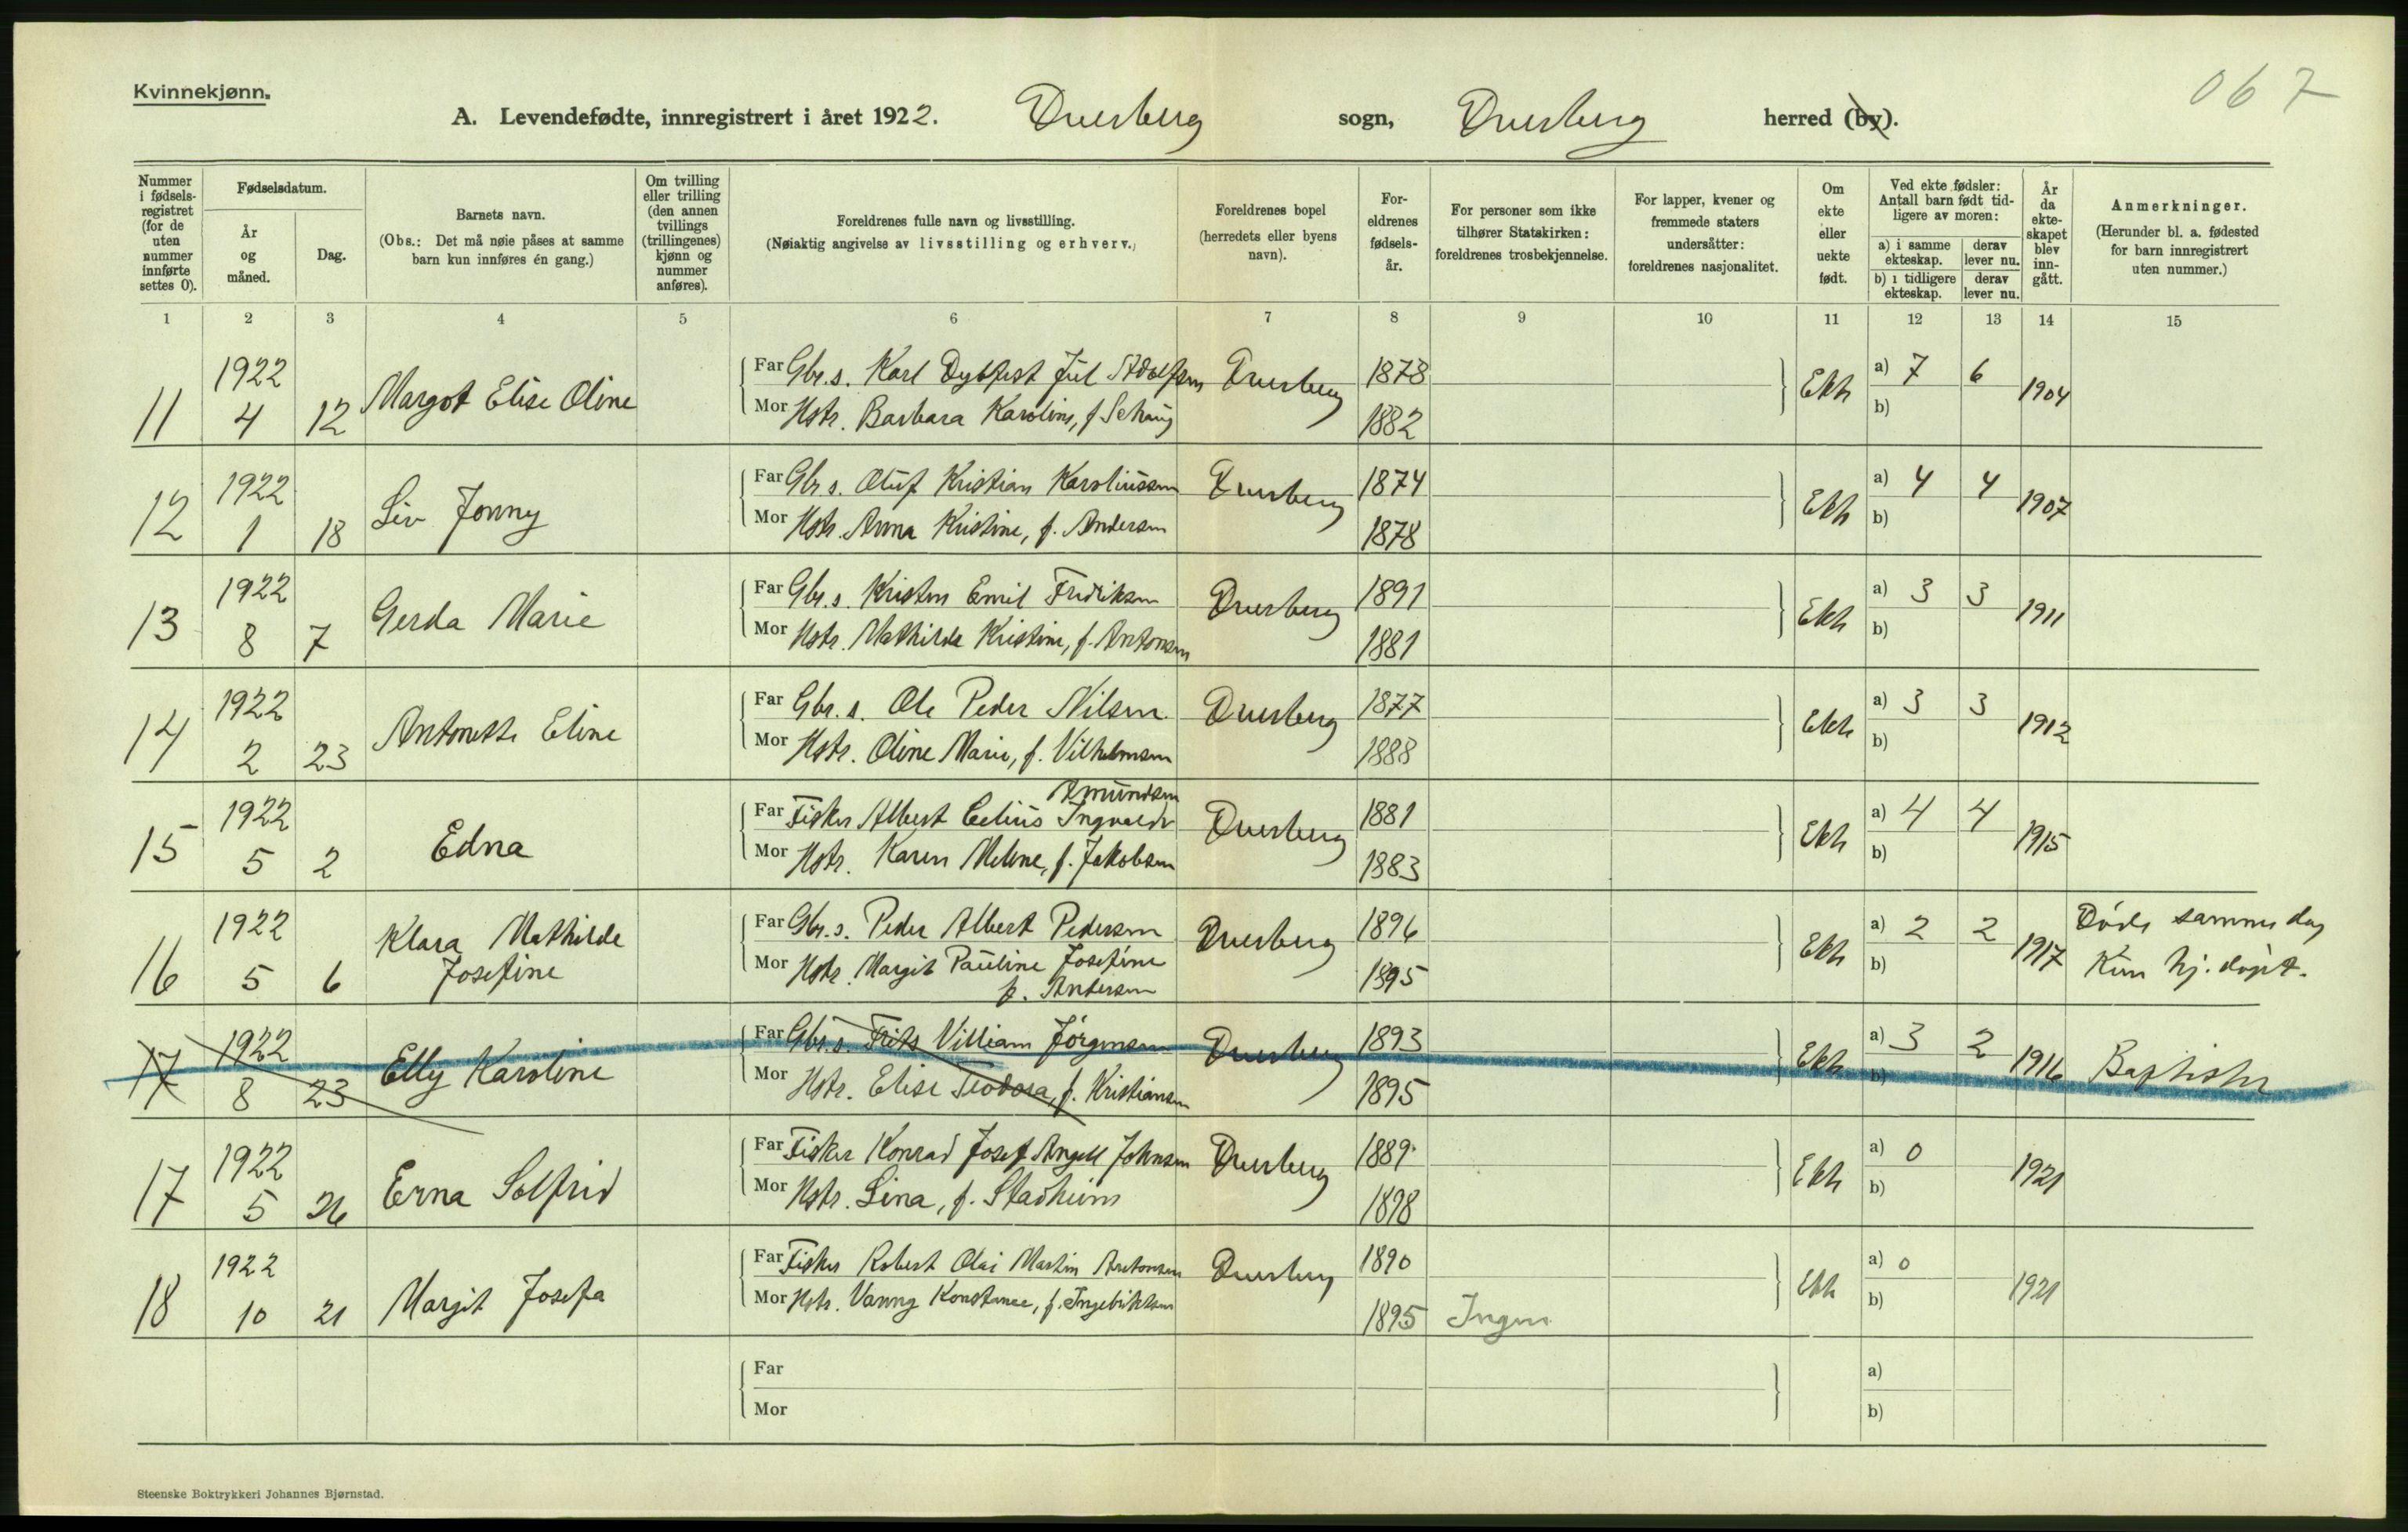 Kvinnekjønn.
067
A. Levendefødte, innregistrert i året 1922. Dverberg sogn, Dverberg herred (by).
Nummer i fødselsregistret (for de uten nummer innførte settes 0).
Fødselsdatum.
År og måned.
Dag.
Barnets navn.
(Obs.: Det må nøie påses at samme barn kun innføres én gang.)
Om tvilling eller trilling (den annen tvillings (trillingenes) kjønn og nummer anføres).
Foreldrenes fulle navn og livsstilling.
(Nøiaktig angivelse av livsstilling og erhverv.)
Foreldrenes bopel (herredets eller byens navn).
For-eldrenes fødsels-år.
For personer som ikke tilhører Statskirken: foreldrenes trosbekjennelse.
For lapper, kvener og fremmede staters undersåtter: foreldrenes nasjonalitet.
Om ekte eller uekte født.
Ved ekte fødsler: Antall barn født tid-ligere av moren:
a) i samme ekteskap.
derav lever nu.
b) i tidligere ekteskap.
derav lever nu.
År da ekte-skapet blev inn-gått.
Anmerkninger.
(Herunder bl. a. fødested for barn innregistrert uten nummer.)
1 2 3 4 5 6 7 8 9 10 11 12 13 14 15
11 1922 4 12 Margot Elise Oline
Far Gbr.s. Karl Dybfest Jul Adolfsen Dverberg 1878 Ekte a) 7 6 1904
Mor Hstr. Barbara Karoline, f. Schaug 1882 b)
12 1922 1 18 Liv Jonny
Far Gbr.s. Oluf Kristian Karoliussen Dverberg 1874 Ekte a) 4 4 1907
Mor Hstr. Anna Kristine, f. Andersen 1878 b)
13 1922 8 7 Gerda Marie
Far Gbr.s. Kristen Emil Fredriksen Dverberg 1891 Ekte a) 3 3 1911
Mor Hstr. Mathilde Kristine, f. Antonsen 1881 b)
14 1922 2 23 Antonette Eline
Far Gbr.s. Ole Peder Nilsen Dverberg 1877 Ekte a) 3 3 1912
Mor Hstr. Oline Marie, f. Vilhelmsen 1888 b)
15 1922 5 2 Edna
Amundsen
Far Fisker Albert Celius Ingvalds Dverberg 1881 Ekte a) 4 4 1915
Mor Hstr. Karen Melene, f. Jakobsen 1883 b)
16 1922 5 6 Klara Mathilde Josefine
Far Gbr.s. Peder Albert Pedersen Dverberg 1896 Ekte a) 2 2 1917 Døde samme dag
Mor Hstr. Margit Pauline Josefine 1895 b) Kun hj. døpt.
f. Andersen
17 1922 8 23 Elly Karoline
Far Gbr.s. Frits Villiam Jørgensen Dverberg 1893 Ekte a) 3 2 1916 Baptister
Mor Hstr. Elise Teodora, f. Kristiansen 1895 b)
17 1922 5 26 Erna Solfrid
Far Fisker Konrad Josef Angell Johnsen Dverberg 1889 Ekte a) 0 1921
Mor Hstr. Lina, f. Stadheim 1898 b)
18 1922 10 21 Margit Josefa
Far Fisker Robert Olai Martin Antonsen Dverberg 1890 Ekte a) 0 1921
Mor Hstr. Vanny Konstance, f. Ingebriktsen 1895 b)
Far a)
Mor b)
Steenske Boktrykkeri Johannes Bjørnstad.